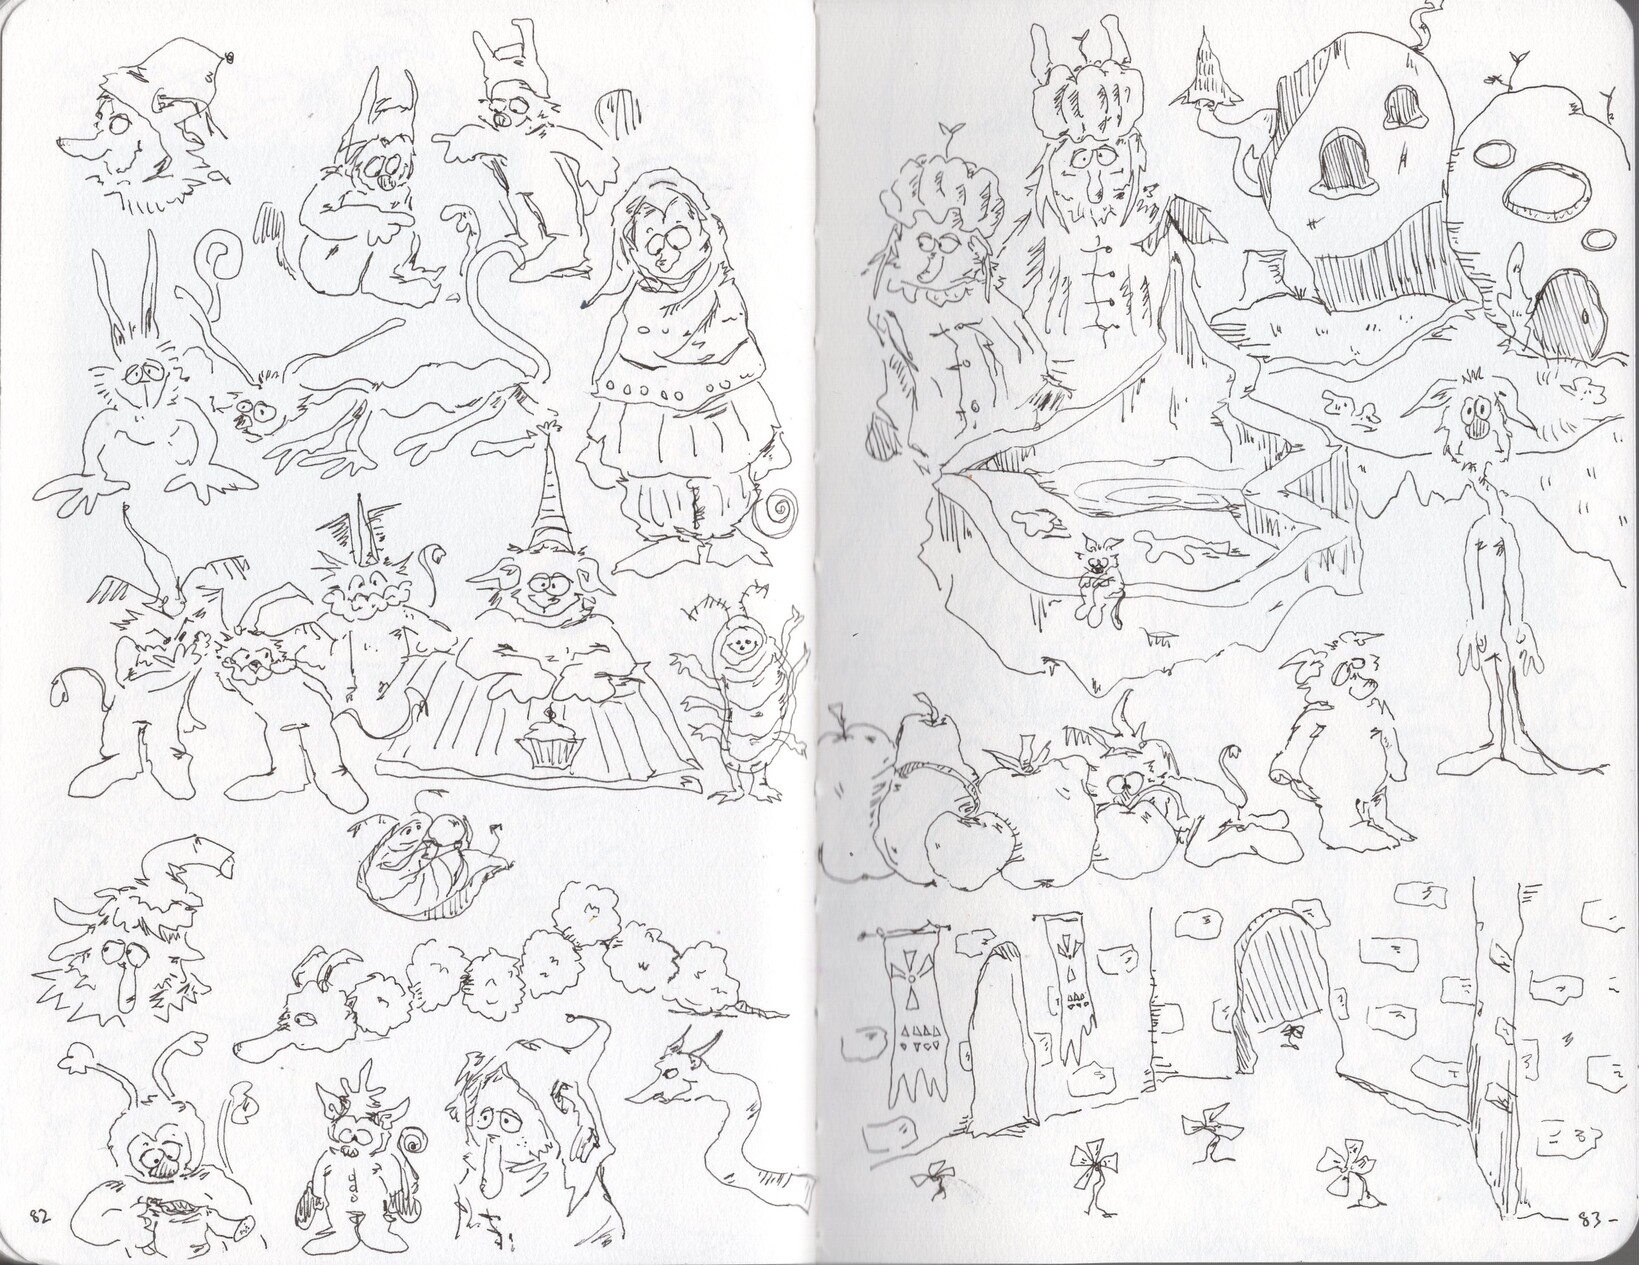 82
83-